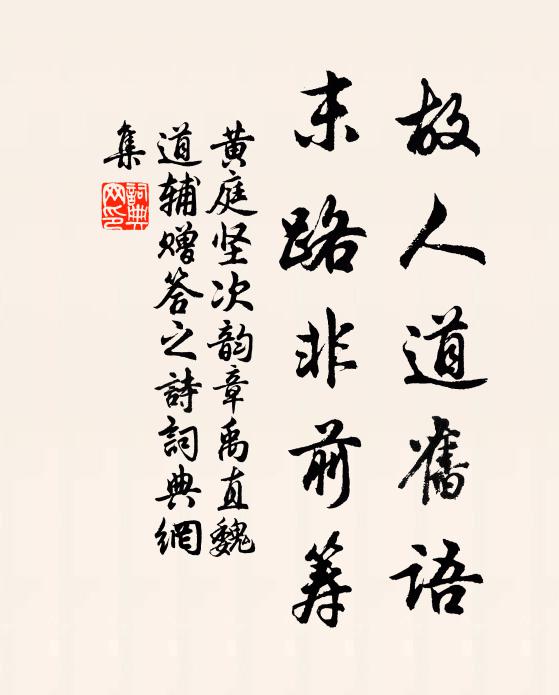 故人道舊語
末路非前籌
黄庭坚次韵章禹直魏
道辅赠答之詩詞典網
集
詞典
网印